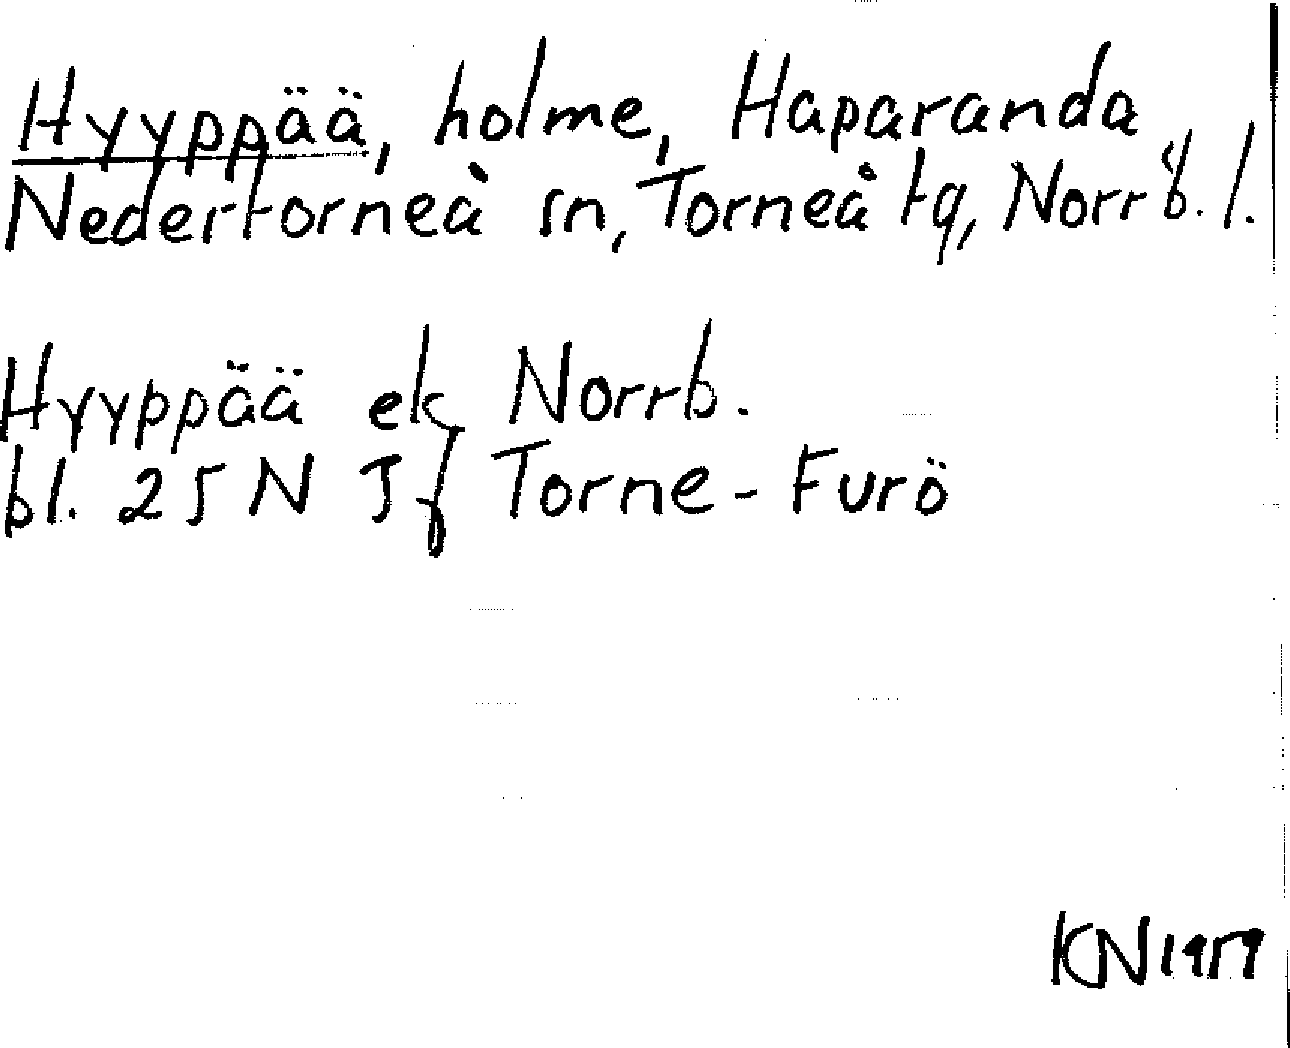 Hyyppää, holme, Haparanda
Nedertorneå sn, Torneå tg, Norrb. l.
Hyyppää ek Norrb.
bl. 25 N Jf Torne-Furö
KN 1959